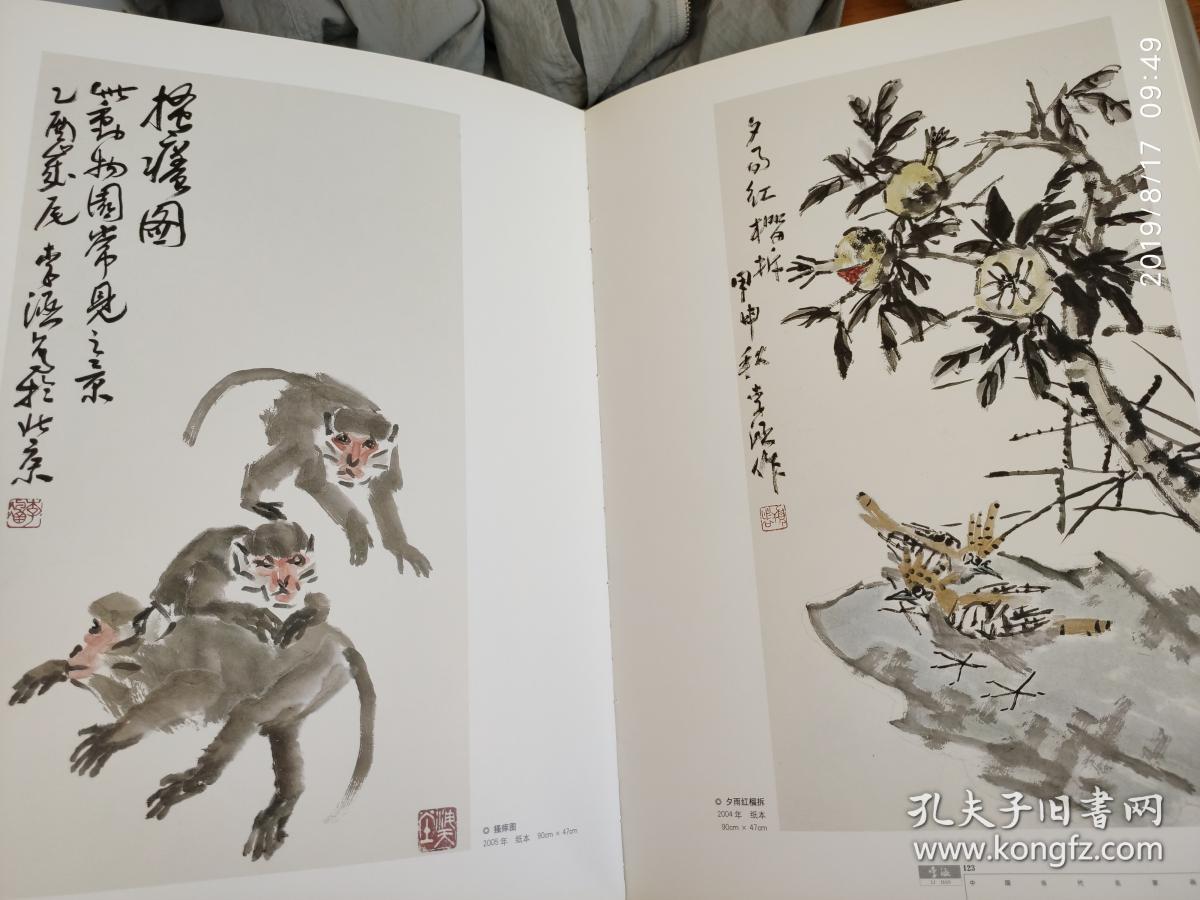 搔痒图
此动物园常见之景
乙酉岁尾 李涵写于北京
搔痒图
2005年 纸本 90cm × 47cm
夕雨红榴拆
甲申秋 李涵作
夕雨红榴拆
2004年 纸本
90cm × 47cm
李涵
LI HAN
123
中国当代名家画
2019/8/17 09:49
孔夫子旧书网
www.kongfz.com